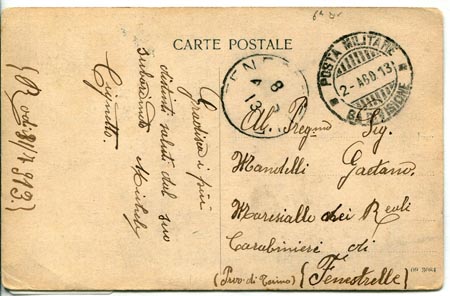 CARTE POSTALE
POSTA MILITARE
2-AGO.13
6ª DIVISIONE
FENE
8
4 13
Gradisca i più
distinti saluti dal suo
subordinato Michele
Cignetto.
(Rodi 31/7 913.)
Al Pregmo Sig.
Mandelli Gaetano.
Maresciallo dei Reali
Carabinieri di
(Prov. di Torino) (Fenestrelle)